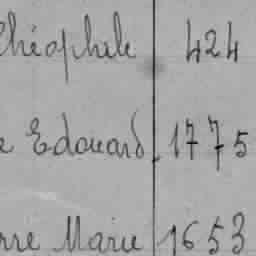 Théophile 424
e Edouard 1775
rre Marie 1653